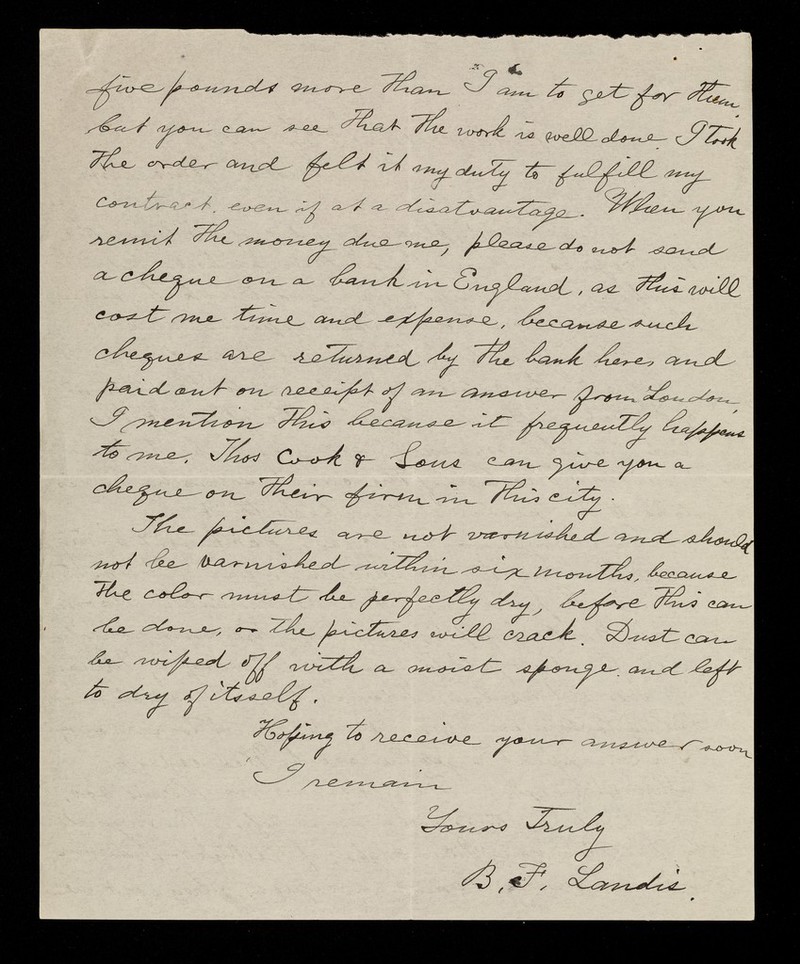 five pounds more than I am to get for them,
but you can see that the work is well done. I took
the order and felt it my duty to fulfill my
contract. even if at a disatvantage. When you
remit the money due me, please do not send
a cheque on a bank in England, as this will
cost me time and expense, because such
cheques are returned by the bank here, and
paid out on receipt of an answer from London,
I mention this because it frequently happens
to me. Thos Cook & Sons can give you a
cheque on their firm in this city.
The pictures are not varnished and should
not be varnished within six months, because
the color must be perfectly dry, before this can
be done, or the pictures will crack. Dust can
be wiped off with a moist sponge. and left
to dry of itsself.
Hoping to receive your answer soon
I remain
Yours Truly
B. F. Landis.